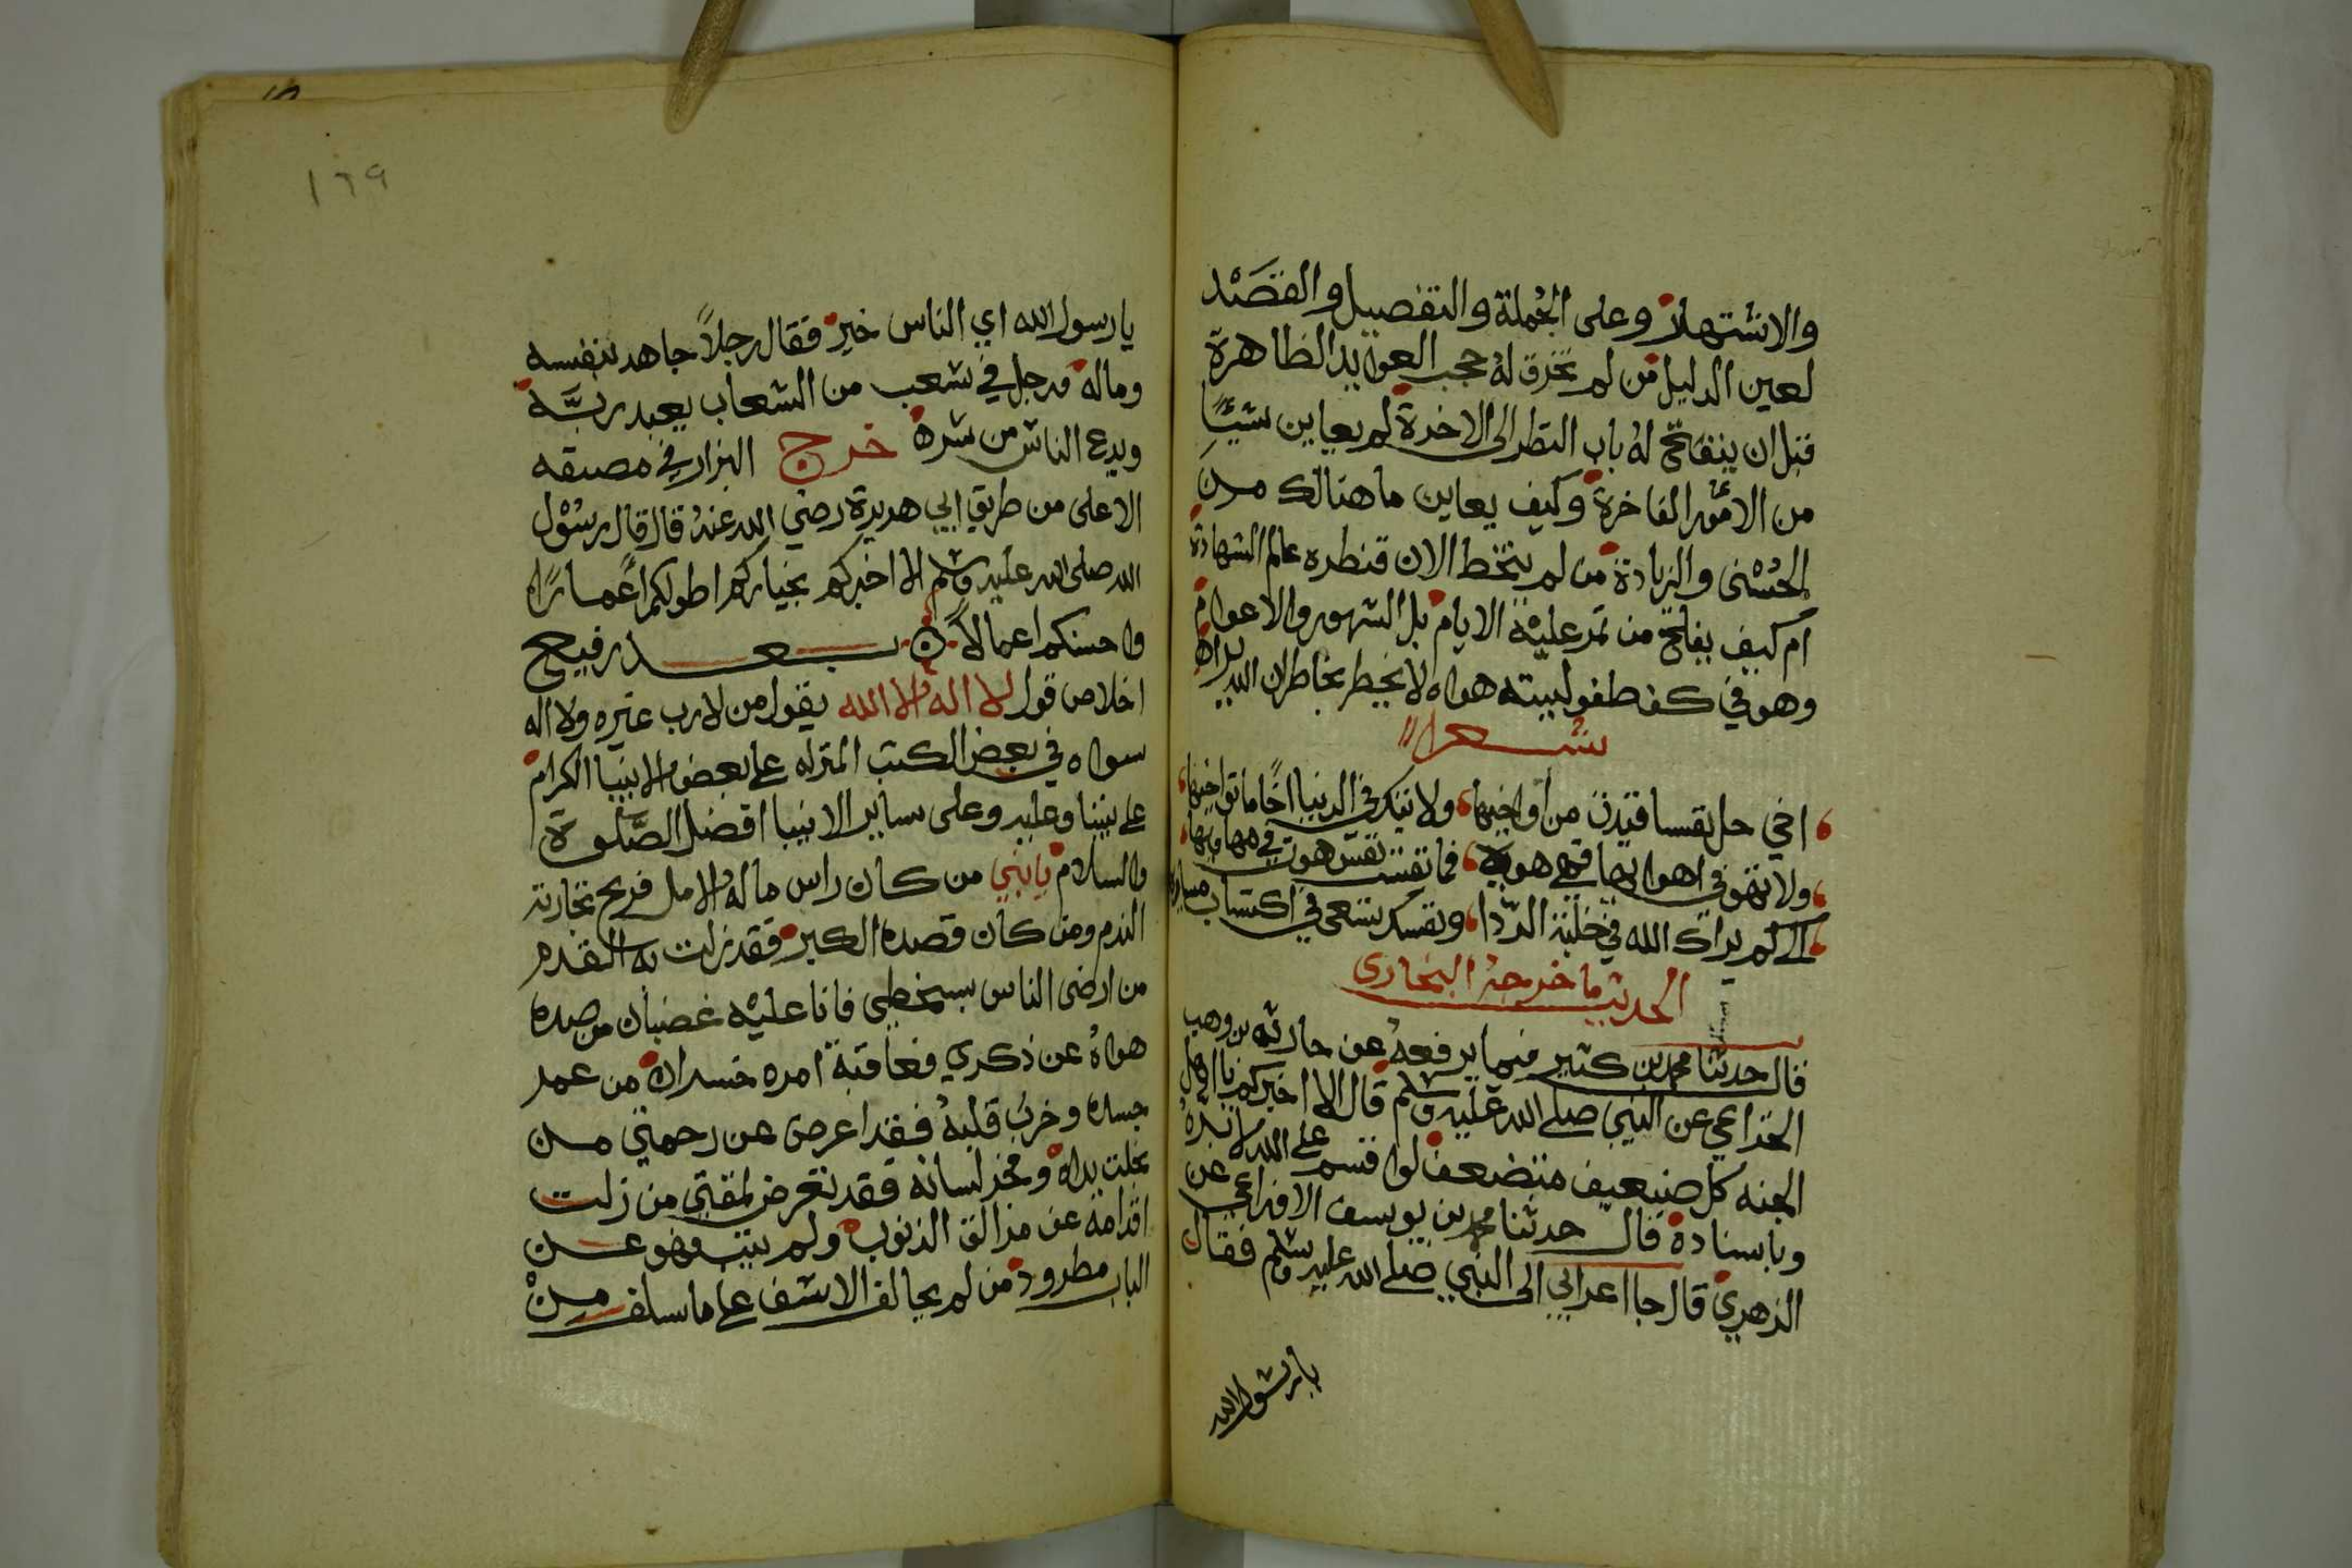 والاشتهار وعلى الجملة والتفصيل والقصد
لعين الدليل من لم تخرق له حجب العوايد الظاهرة
قبل ان ينفتح له باب النظر الى الاخرة لم يعاين شيئا
من الامور الفاخرة وكيف يعاين ما هنالك من
الحسنى والزيادة من لم يتخط الان قنطره عالم الشهادة
ام كيف يفلح من تمر عليه الايام بل الشهور والاعوام
وهو في كف طفوليته هواه لا يخطر بخاطره ان الله يراه
شعرا
اخي حل نفسا من اواخيها ولا تتك في الدنيا اخا ما تواخيها
ولا تهو في اهوايها فهي هوية فما نفس هوت في مهاويها
الى كم يراك الله في حلبة الردا ونفسك تسعى في اكتساب
الحديث ما خرجه البخاري
قال حدثنا محمد بن كثير فيما يرفعه عن حارثه بن وهب
الخزاعي عن النبي صلى الله عليه وسلم قال الا اخبركم باهل
الجنه كل ضعيف متضعف لو اقسم على الله لابره
وباسناده قال حدثنا محمد بن يوسف الاوزاعي عن
الزهري قال جا اعرابي الى النبي صلى الله عليه وسلم فقال
يا رسول الله
١٦٩
يا رسول الله اي الناس خير فقال رجلا جاهد بنفسه
وماله ورجل في شعب من الشعاب يعبد ربه
ويدع الناس من شره خرج البزار في مصنفه
الاعلى من طريق ابي هريرة رضي الله عنه قال قال رسول
الله صلى الله عليه وسلم الا اخبركم بخياركم اطولكم اعمارا
واحسنكم اعمالا بعد رفيع
اخلاص قول لا اله الا الله يقول من لا رب غيره ولا اله
سواه في بعض الكتب المنزله على بعض الانبيا الكرام
على نبينا وعليه وعلى ساير الانبيا افضل الصلوة
والسلام يا بني من كان راس ماله الامل فربح تجارته
الندم ومن كان قصده الكبر فقد زلت به القدم
من ارضى الناس بسخطي فانا عليه غضبان من صده
هواه عن ذكري فعاقبة امره خسران من عمر
جسده وخرب قلبه فقد اعرض عن رحمتي من
بخلت يداه وفخر لسانه فقد تعرض لمقتي من زلت
اقدامه عن مزالق الذنوب ولم يتب فهو عن
الباب مطرود من لم يحالف الاسف على ما سلف من